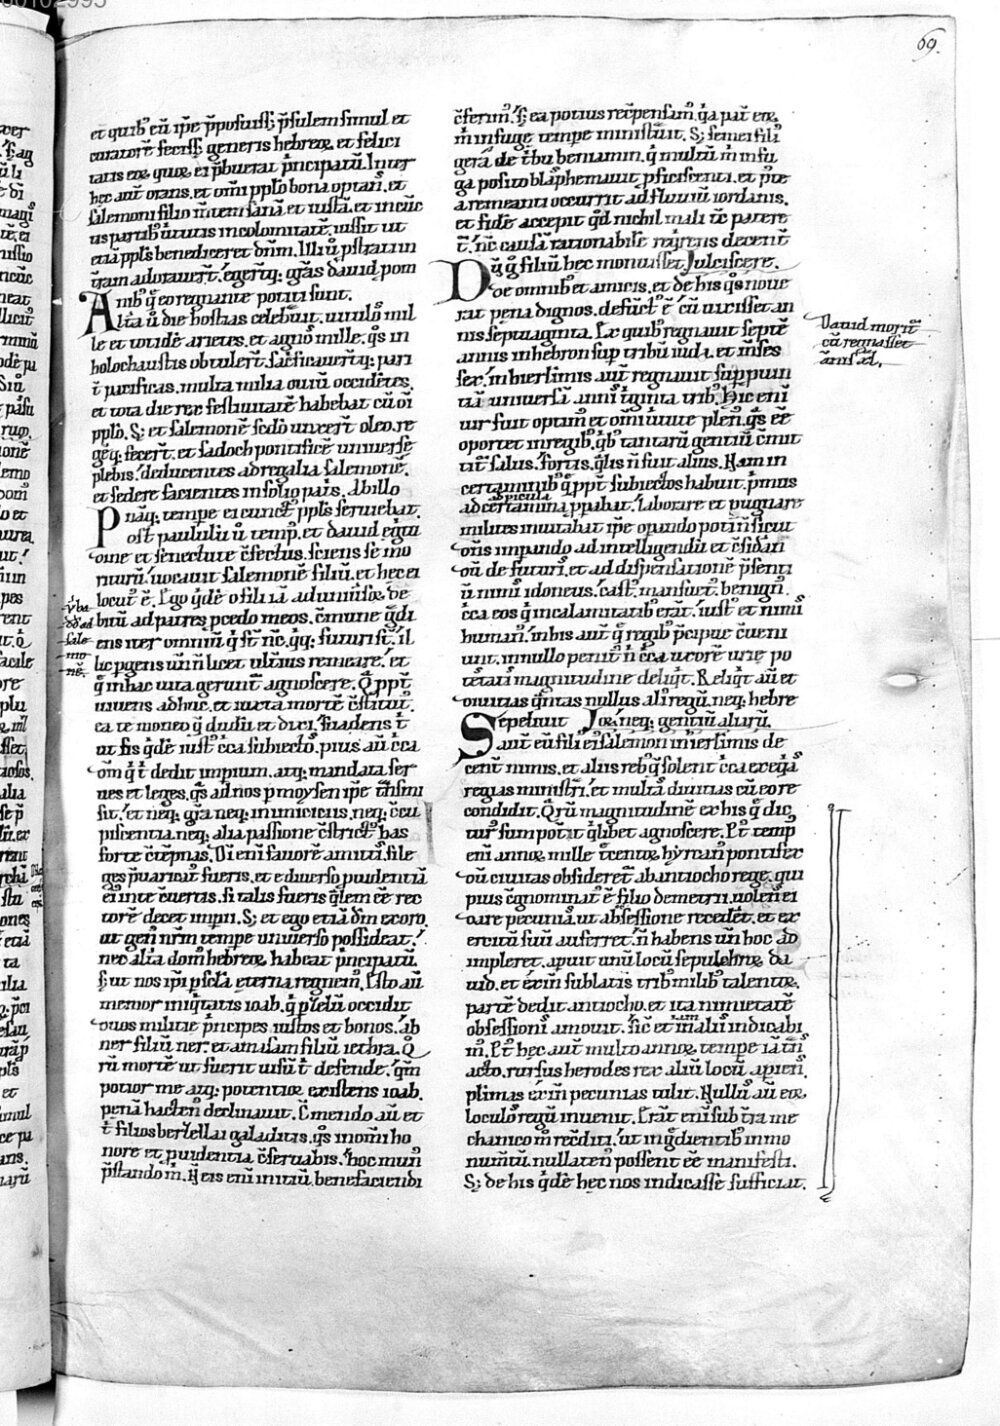 69.
et quib; eū ip̄e p̄posuiss; p̄sulem simul et
curatorē feciss; generis hebreoꝝ et felici
tatis eoꝝ quoꝝ ei p̄buerat p̄ncipatū. Inter
hec aūt orans. et om̄i pp̄lo bona optans. et
salemoni filio m̄tem sanā et iustā. et in cūc
tis partib; uirtutis incolomitatē. iussit ut
etiā pp̄ls benediceret dn̄m. Illi ū pstrati in
t̄ram adorauert̄. egerūtq; gr̄as dauid pom
nib; q̄ eo regnante potiti sunt.
Altā ū die hostias celebrauit. uitulos mil
le et totidē arietes. et agnos mille. qs̄ in
holochaustis obtulert̄. sacrificauerūtq; pari
t̄ pacificas. multa milia ouiū occidētes.
et tota die rex festiuitatē habebat cū om̄i
pp̄lo. S; et salemonē sed̄o unxert̄ oleo. re
gēq; fecert̄. et sadoch pontificē uniuerse
plebis. deducentes ad regalia salemonē.
et sedere facientes in solio patris. Ab illo
nāq; tempe ei cunct; pp̄ls seruiebat.
Post paululū ū temp; et dauid egri
dine et senectute c̄fectus. sciens se mo
riturū. uocauit salemonē filiū. et hec ei
locut; ē. Ego qd̄ē o fili iā ad uniuersoꝝ de
bitū ad patres pcedo meos. c̄mune gradi
ens iter omniū q̄ st̄ nc̄. q̄q; futuri st̄. il
luc pgens un̄ n̄ licet ulterius remeare. et
q̄ in hac uita gerunt̄ agnoscere. Q ppt̄
uiuens adhuc. et iuxta mortē c̄stitut;
ea te moneo q̄ dudū et dixi. tradens t̄
ut sis qd̄ē iust; c̄ca subiectos. pius aū c̄ca
dm̄ q̄ t̄ dedit impium. atq; mandata ser
ues et leges. qs̄ ad nos p moysen ip̄e t̄nsmi
sit. et neq; gr̄a neq; inimicicus neq; c̄cu
piscentia. neq; alia passione c̄strict; has
forte c̄tēpnas. Di eni fauorē amittis. si le
ges p̄uaricat; fueris. et e diuerso puidentiā
ei; in te c̄uertis. si talis fueris q̄lem ēē rec
torē decet impii. S; et ego etiā dm̄ exoro.
ut gen; nrm̄ tempe uniuerso possideat.
nec alia dom; hebreoꝝ habeat p̄ncipatū
s; ut nos ip̄i p sc̄la eterna regnem;. Esto aū
memor iniq̄tatis ioab. q̄ p̄ zelū occidit
duos militie p̄ncipes. iustos et bonos. ab
ner filiū ner. et amasam filiū iethra. Q
rū mortē ut fuerit uisū t̄ defende. qm̄
potior me atq; potentior existens ioab.
penā hacten; declinauit. C̄mendo aū et
t̄ filios berzellai galaditis. qs̄ in om̄i ho
nore et puidentia c̄seruabis. hoc mun;
p̄stando m̄. N eis eni initiū benefaciendi
c̄ferim;. s; ea potius rec̄pensam; q̄a pat̄ eoꝝ
m̄ in fuge tempe ministrauit. S; semei filiū
gera de tribu beniamin. q̄ multū m̄ in fu
ga posito blasphemauit pficiscenti. et p̄te
a remeanti occurrit ad fluuiū iordanis.
et fidē accepit qd̄ nichil mali tc̄ patere
t̄. nc̄ causā rationabilē req̄rens decent̄
ulciscere.
Dū g̊ filiū hec monuisset
de omnib; et amicis. et de his qs̄ noue
rat pena dignos. defunct; ē cū uixisset an
nis septuaginta. Ex quib; regnauit septē
annis in hebron sup tribū iuda. et m̄ses
sex. in hierlimis aūt regnauit sup pum
tiā uniuersā annis t̄ginta trib;. Hic eni
uir fuit optim; et om̄i uirtute plen;. qs̄ ēē
oportet in regib;. qb; tantarū gentiū c̄mit
tit̄ salus. fortis. q̄lis n̄ fuit alius. Nam in
certaminib; q̄ ppt̄ subiectos habuit. p̄mus
ad certamina ppabat. laborare et pugnare
apicula
milites inuitabat ip̄e opando potiū sicut
dn̄s impando. ad intelligendū et c̄siderā
dū de futuris. et ad dispensationē p̄senti
ū nimis idoneus. cast; mansuet; benign;
c̄ca eos q̄ in calamitatib; erāt. iust; et nimis
human;. in his aūt q̄ regib; p̄cipue c̄ueni
unt. in nullo penit; n̄ c̄ca uxorē urie po
testatis magnitudine deliq̄t. Reliq̄t aū et
diuitias q̄ntas nullus alioꝝ regū. neq; hebre
oꝝ. neq; gentiū aliarū.
Sepeliuit
aūt eū fili; ei; salemon in ierlimis de
cent̄ nimis. et aliis reb; q̄ solent c̄ca exeq̄as
regias ministrari. et multā diuitias cū eo re
condidit. Qrū magnitudinē ex his q̄ dic
tur; sum poterit q̄libet agnoscere. Et temp;
eni annoꝝ mille trecentoꝝ hyrcan; pontifex
dū ciuitas obsideret̄ ab antiocho rege. qui
pius c̄gnominat; ē filio demetrii. uolens ei
dare pecuniā. ut ab obsessione recederet. et ex
ercitū suū auferret. n̄ habens un̄ hoc ad
impleret. apuit unū locū sepulchroꝝ da
uid. et ex in̄ sublatis trib; milib; talentoꝝ.
partē dedit antiocho. et ita nimietatē
obsessionis amouit. sic et in aliis indicabi
m;. Et hec aūt multo annoꝝ tempe iā t̄ns
acto. rursus herodes rex aliū locū apiens.
plimas ex in̄ pecunias tulit. Nullus aū eoꝝ
loculos regū inuenit. Erāt eni sub t̄ra me
chanico m̄ rec̄diti. ut ingredientib; in mo
numtū. nullaten; possent ēē manifesti.
S; de his qd̄ē hec nos indicasse sufficiat.
Dauid morit̄
cū regnasset
ānis xl.
v̄ba
dd̄ ad
sale
mo
nē.